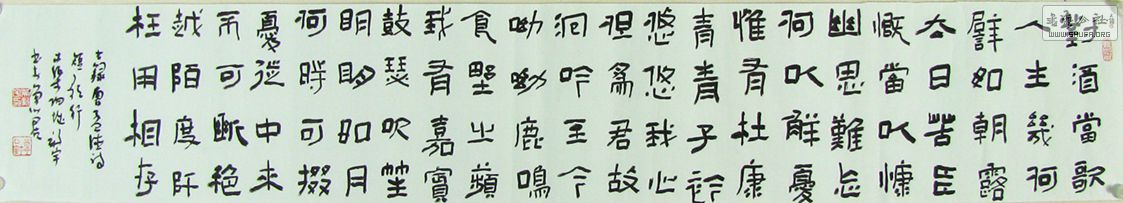 對酒當歌
人生幾何
譬如朝露
去日苦多
慨當以慷
幽思難忘
何以解憂
惟有杜康
青青子衿
悠悠我心
但爲君故
沉吟至今
呦呦鹿鳴
食野之蘋
我有嘉賓
鼓瑟吹笙
明明如月
何時可掇
憂從中來
不可斷絕
越陌度阡
枉用相存
曹孟德詩
短歌行